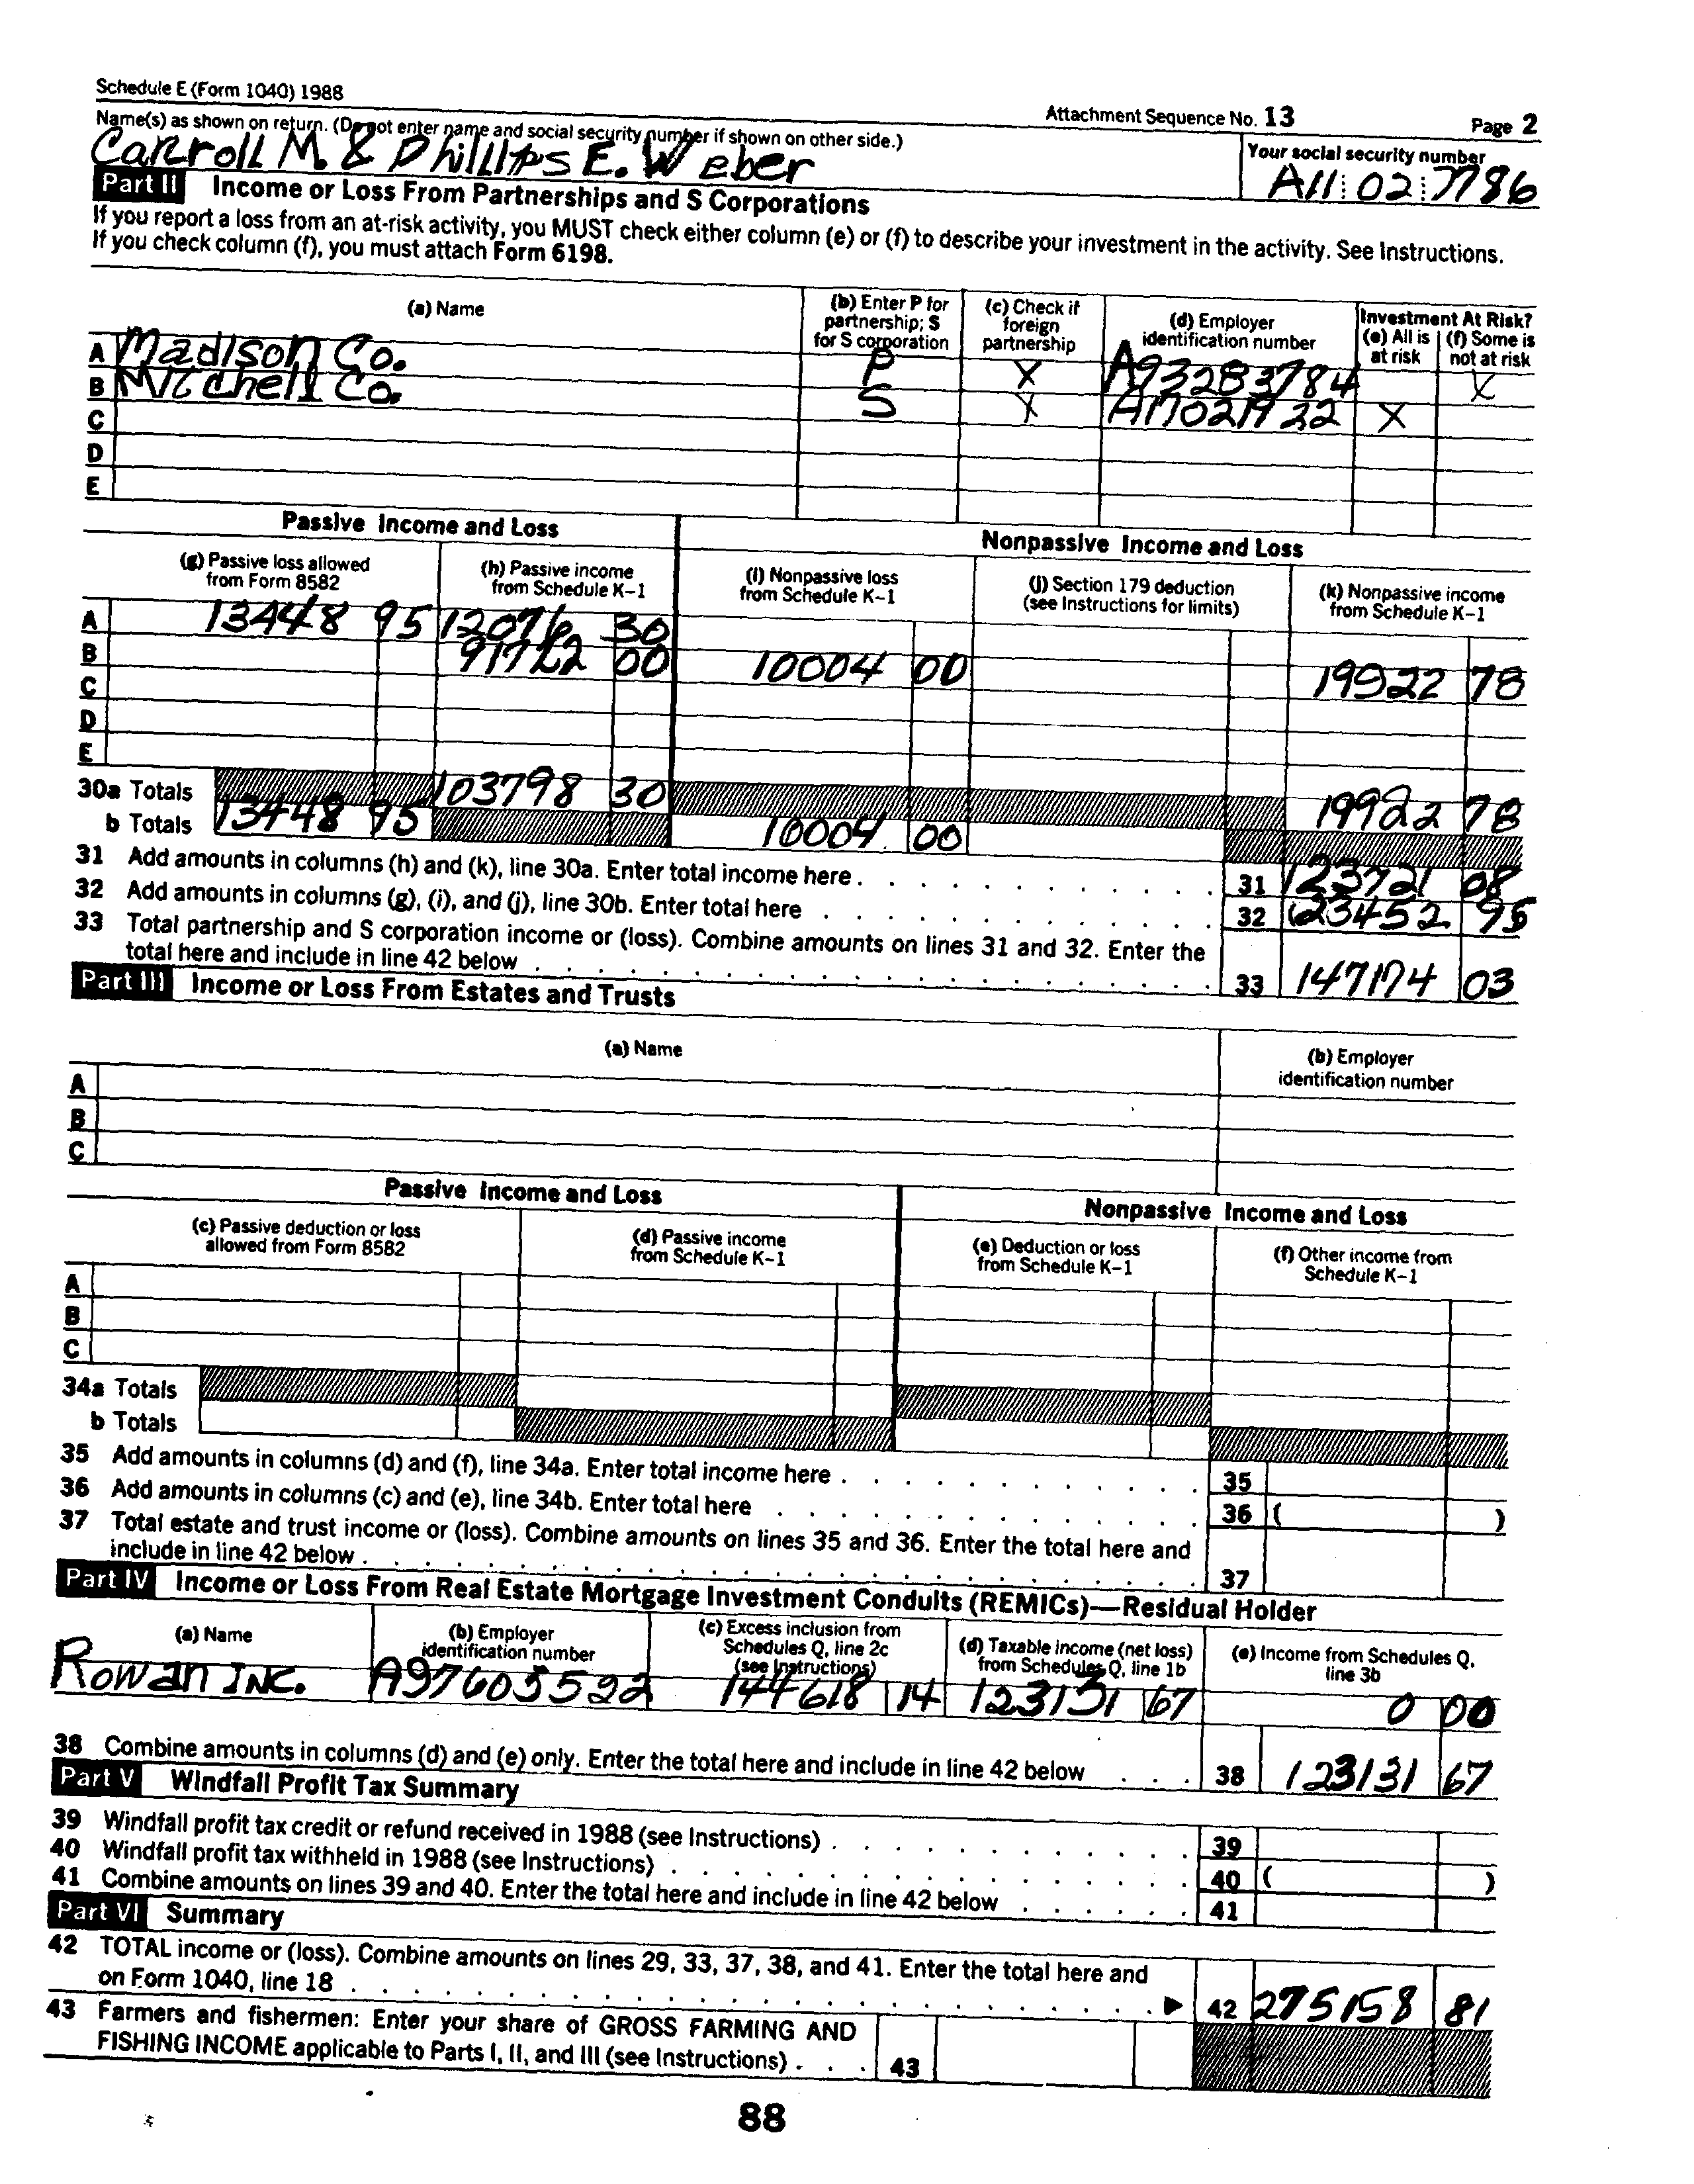 Schedule E (Form 1040) 1988
Attachment Sequence No. 13 Page 2
Name(s) as shown on return. (Do not enter name and social security number if shown on other side.)
Your social security number
Carroll M. & Phillips E. Weber
A11 02 7786
Part II Income or Loss From Partnerships and S Corporations
If you report a loss from an at-risk activity, you MUST check either column (e) or (f) to describe your investment in the activity. See Instructions.
If you check column (f), you must attach Form 6198.
(a) Name
(b) Enter P for partnership; S for S corporation
(c) Check if foreign partnership
(d) Employer identification number
Investment At Risk?
(e) All is at risk
(f) Some is not at risk
A Madison Co. P X A93283784 X
B Mitchell Co. S X A17021922 X
C
D
E
Passive Income and Loss
Nonpassive Income and Loss
(g) Passive loss allowed from Form 8582
(h) Passive income from Schedule K-1
(i) Nonpassive loss from Schedule K-1
(j) Section 179 deduction (see Instructions for limits)
(k) Nonpassive income from Schedule K-1
A 13448 95 12076 30
B 91722 00 10004 00 19922 78
C
D
E
30a Totals 103798 30 19922 78
b Totals 13448 95 10004 00
31 Add amounts in columns (h) and (k), line 30a. Enter total income here 31 123721 08
32 Add amounts in columns (g), (i), and (j), line 30b. Enter total here 32 (23452 95
33 Total partnership and S corporation income or (loss). Combine amounts on lines 31 and 32. Enter the
total here and include in line 42 below 33 147174 03
Part III Income or Loss From Estates and Trusts
(a) Name
(b) Employer identification number
A
B
C
Passive Income and Loss
Nonpassive Income and Loss
(c) Passive deduction or loss allowed from Form 8582
(d) Passive income from Schedule K-1
(e) Deduction or loss from Schedule K-1
(f) Other income from Schedule K-1
A
B
C
34a Totals
b Totals
35 Add amounts in columns (d) and (f), line 34a. Enter total income here 35
36 Add amounts in columns (c) and (e), line 34b. Enter total here 36 ( )
37 Total estate and trust income or (loss). Combine amounts on lines 35 and 36. Enter the total here and
include in line 42 below 37
Part IV Income or Loss From Real Estate Mortgage Investment Conduits (REMICs)—Residual Holder
(a) Name
(b) Employer identification number
(c) Excess inclusion from Schedules Q, line 2c (see Instructions)
(d) Taxable income (net loss) from Schedules Q, line 1b
(e) Income from Schedules Q, line 3b
Rowan Inc. A97605522 144618 14 123131 67 0 00
38 Combine amounts in columns (d) and (e) only. Enter the total here and include in line 42 below 38 123131 67
Part V Windfall Profit Tax Summary
39 Windfall profit tax credit or refund received in 1988 (see Instructions) 39
40 Windfall profit tax withheld in 1988 (see Instructions) 40 ( )
41 Combine amounts on lines 39 and 40. Enter the total here and include in line 42 below 41
Part VI Summary
42 TOTAL income or (loss). Combine amounts on lines 29, 33, 37, 38, and 41. Enter the total here and
on Form 1040, line 18 ▶ 42 275158 81
43 Farmers and fishermen: Enter your share of GROSS FARMING AND
FISHING INCOME applicable to Parts I, II, and III (see Instructions) 43
88